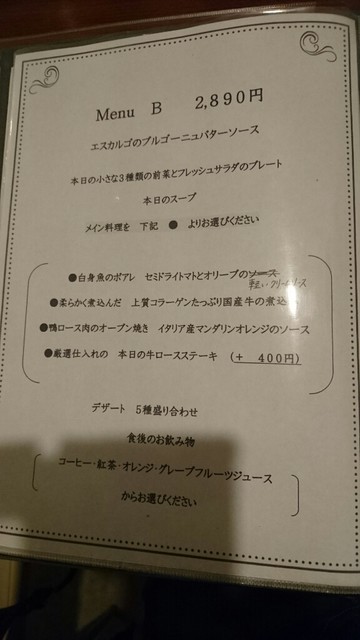 Menu B 2,890円
エスカルゴのブルゴーニュバターソース
本日の小さな3種類の前菜とフレッシュサラダのプレート
本日のスープ
メイン料理を 下記 ● よりお選びください
●白身魚のポアレ セミドライトマトとオリーブのソース
軽いクリームソース
●柔らかく煮込んだ 上質コラーゲンたっぷり国産牛の煮込
●鴨ロース肉のオーブン焼き イタリア産マンダリンオレンジのソース
●厳選仕入れの 本日の牛ロースステーキ (+ 400円)
デザート 5種盛り合わせ
食後のお飲み物
コーヒー・紅茶・オレンジ・グレープフルーツジュース
からお選びください